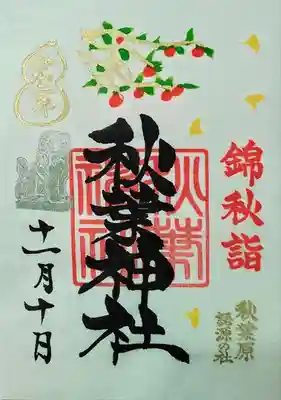 錦秋詣
秋葉原
語源の社
秋葉神社
十一月十日